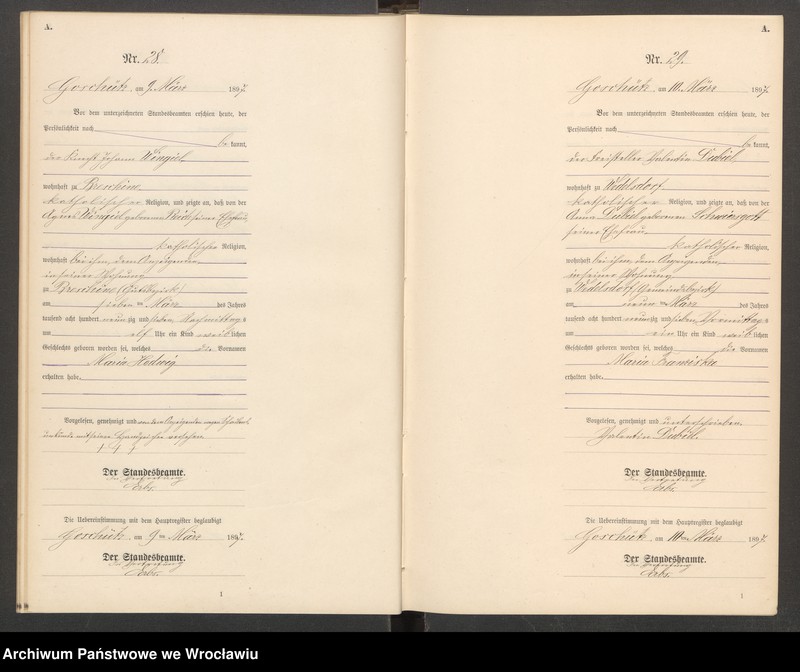 A.
Nr. 28.
Goschütz am 9. März 1897.
Vor dem unterzeichneten Standesbeamten erschien heute, der
Persönlichkeit nach
be kannt,
der Knecht Johann
wohnhaft zu
katholischer Religion, und zeigte an, daß von der
Agnes geborenen seiner Ehefrau
katholischer Religion,
wohnhaft bei ihm, dem Anzeigenden
in seiner Wohnung
zu (Gutsbezirk)
am sieben ten März des Jahres
tausend acht hundert neunzig und sieben Nachmittags
um elf Uhr ein Kind weib lichen
Geschlechts geboren worden sei, welches die Vornamen
Maria Hedwig
erhalten habe.
Vorgelesen, genehmigt und von dem Anzeigenden wegen
unkunde mit seinem Handzeichen versehen
+ + +
Der Standesbeamte.
In Vertretung
Die Uebereinstimmung mit dem Hauptregister beglaubigt
Goschütz am 9ten März 1897.
Der Standesbeamte.
In Vertretung
1
A.
Nr. 29.
Goschütz am 10. März 1897.
Vor dem unterzeichneten Standesbeamten erschien heute, der
Persönlichkeit nach
be kannt,
der Freisteller Valentin Dubiel
wohnhaft zu Wedelsdorf
katholischer Religion, und zeigte an, daß von der
Anna Dubiel geborenen
seiner Ehefrau
katholischer Religion,
wohnhaft bei ihm, dem Anzeigenden,
in seiner Wohnung
zu Wedelsdorf (Gemeindebezirk)
am neun ten März des Jahres
tausend acht hundert neunzig und sieben Vormittags
um ein Uhr ein Kind weib lichen
Geschlechts geboren worden sei, welches die Vornamen
Maria Franziska
erhalten habe.
Vorgelesen, genehmigt und unterschrieben.
Valentin Dubiel.
Der Standesbeamte.
In Vertretung
Die Uebereinstimmung mit dem Hauptregister beglaubigt
Goschütz am 10ten März 1897.
Der Standesbeamte.
In Vertretung
1
Archiwum Państwowe we Wrocławiu